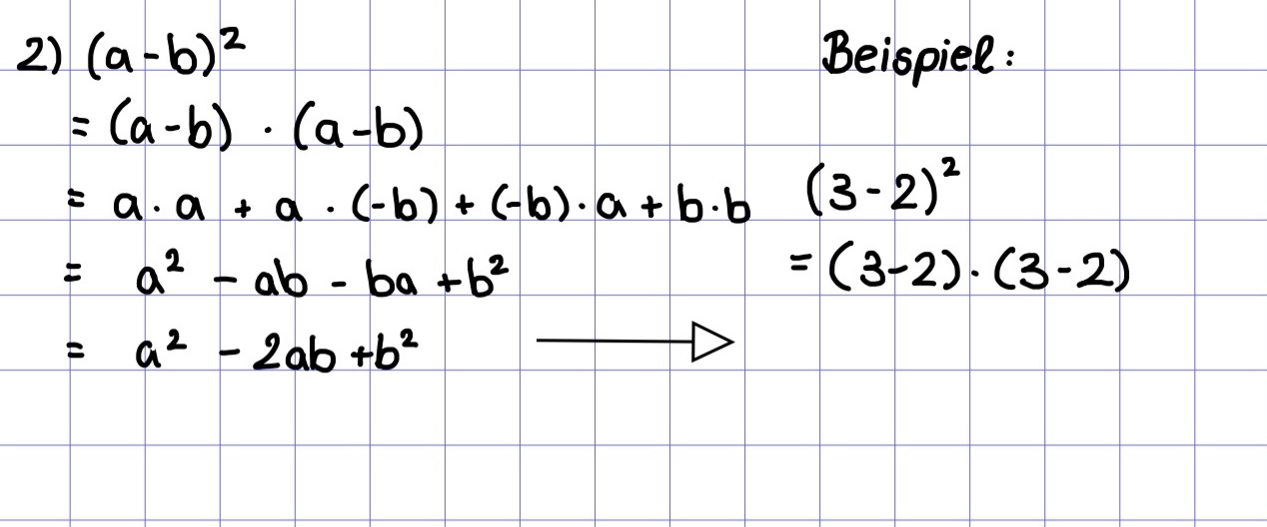 2) (a-b)²
= (a-b) · (a-b)
= a·a + a·(-b) + (-b)·a + b·b
= a² - ab - ba + b²
= a² - 2ab + b²
Beispiel:
(3-2)²
= (3-2)·(3-2)